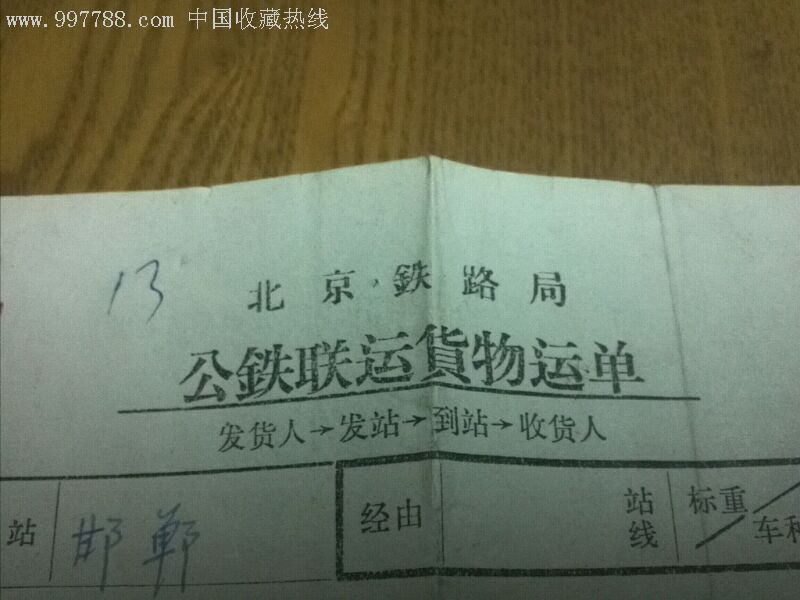 www.997788.com 中国收藏热线
13
北京鉄路局
公鉄联运貨物运单
发货人→发站→到站→收货人
站 邯郸 经由 站线 标重/车种